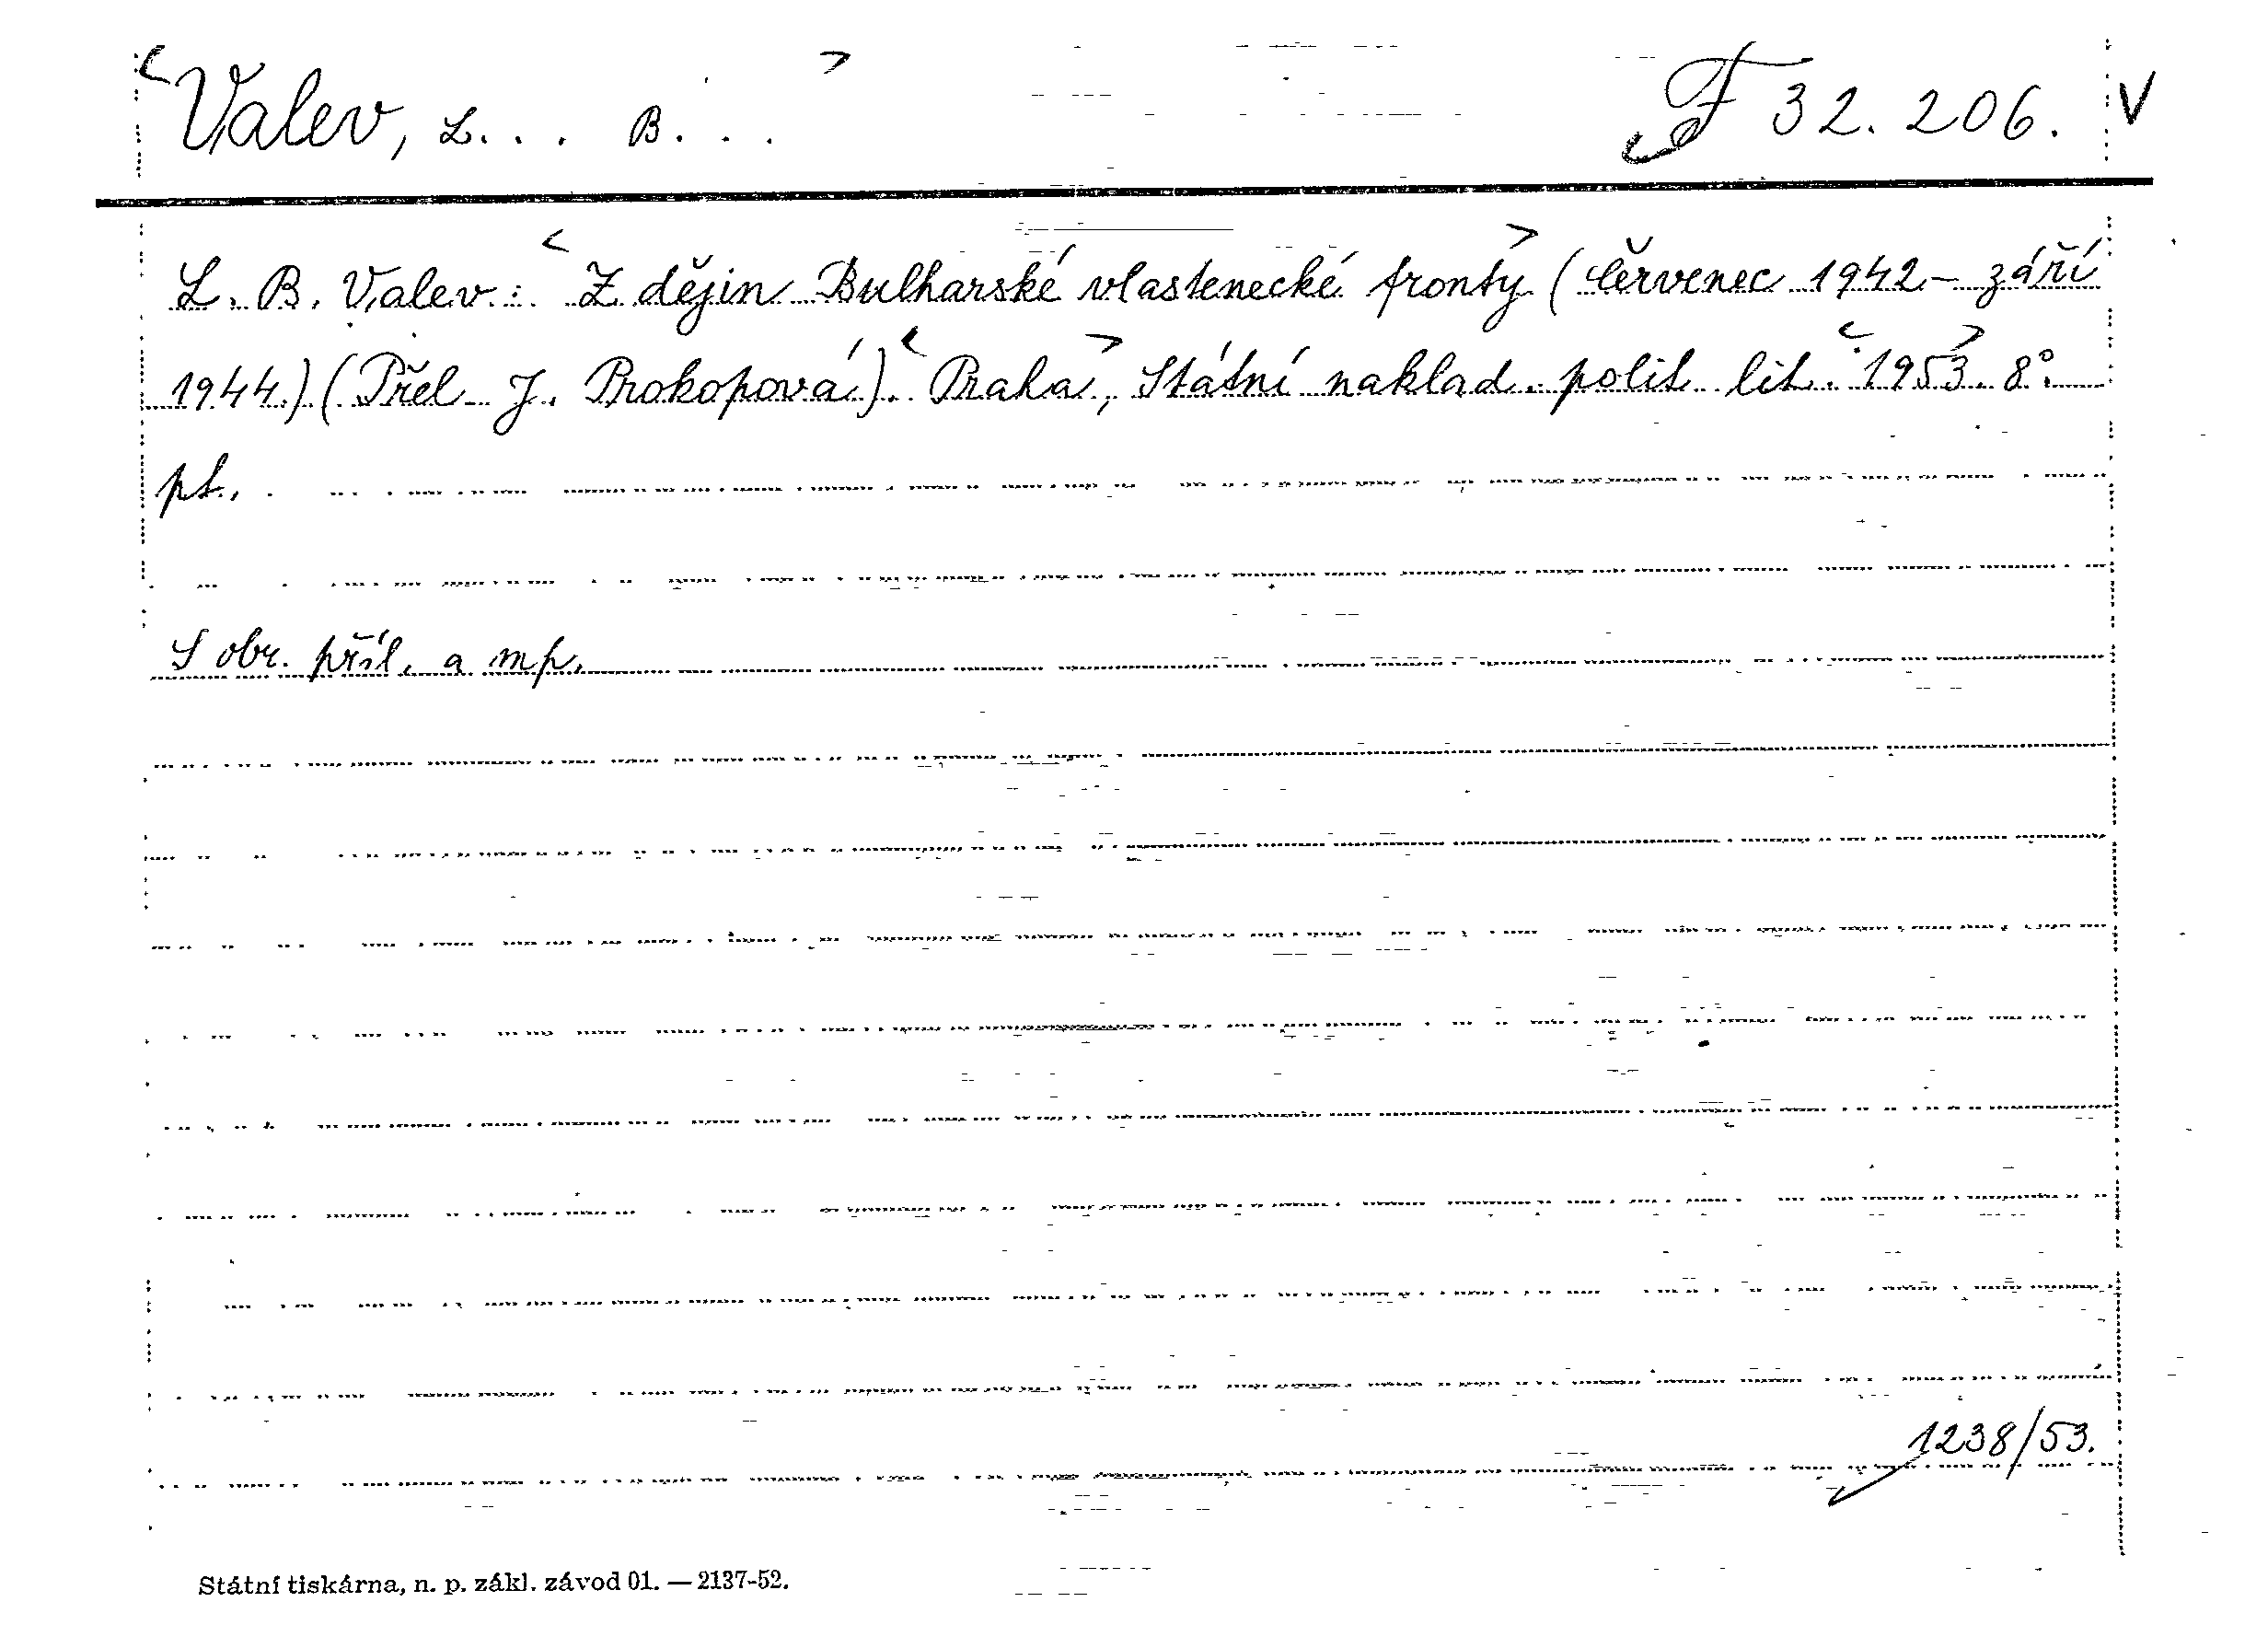 <Valev, L... B...> F 32.206. V
L. B. Valev: <Z dějin Bulharské vlastenecké fronty> (červenec 1942 - září
1944.) (Přel. J. Prokopová). <Praha>, Státní naklad. polit. lit. <1953>. 8°.
pt..
S obr. příl. a mp.
1238/53.
Státní tiskárna, n. p. zákl. závod 01. — 2137-52.